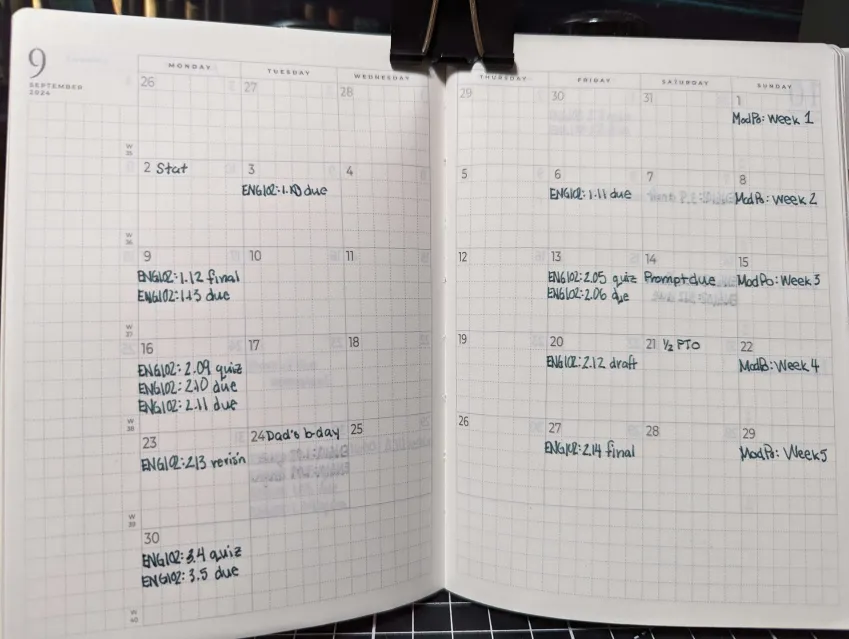 9
SEPTEMBER
2024
MONDAY TUESDAY WEDNESDAY THURSDAY FRIDAY SATURDAY SUNDAY
26 27 28 29 30 31 1
ModPo: Week 1
W
35
2 Stat 3 4 5 6 7 8
ENG102: 1.10 due ENG102: 1.11 due ModPo: Week 2
W
36
9 10 11 12 13 14 15
ENG102: 1.12 final ENG102: 2.05 quiz Prompt due ModPo: Week 3
ENG102: 1.13 due ENG102: 2.06 due
W
37
16 17 18 19 20 21 1/2 PTO 22
ENG102: 2.09 quiz ENG102: 2.12 draft ModPo: Week 4
ENG102: 2.10 due
ENG102: 2.11 due
W
38
23 24 Dad's b-day 25 26 27 28 29
ENG102: 2.13 revisin ENG102: 2.14 final ModPo: Week 5
W
39
30
ENG102: 3.4 quiz
ENG102: 3.5 due
W
40